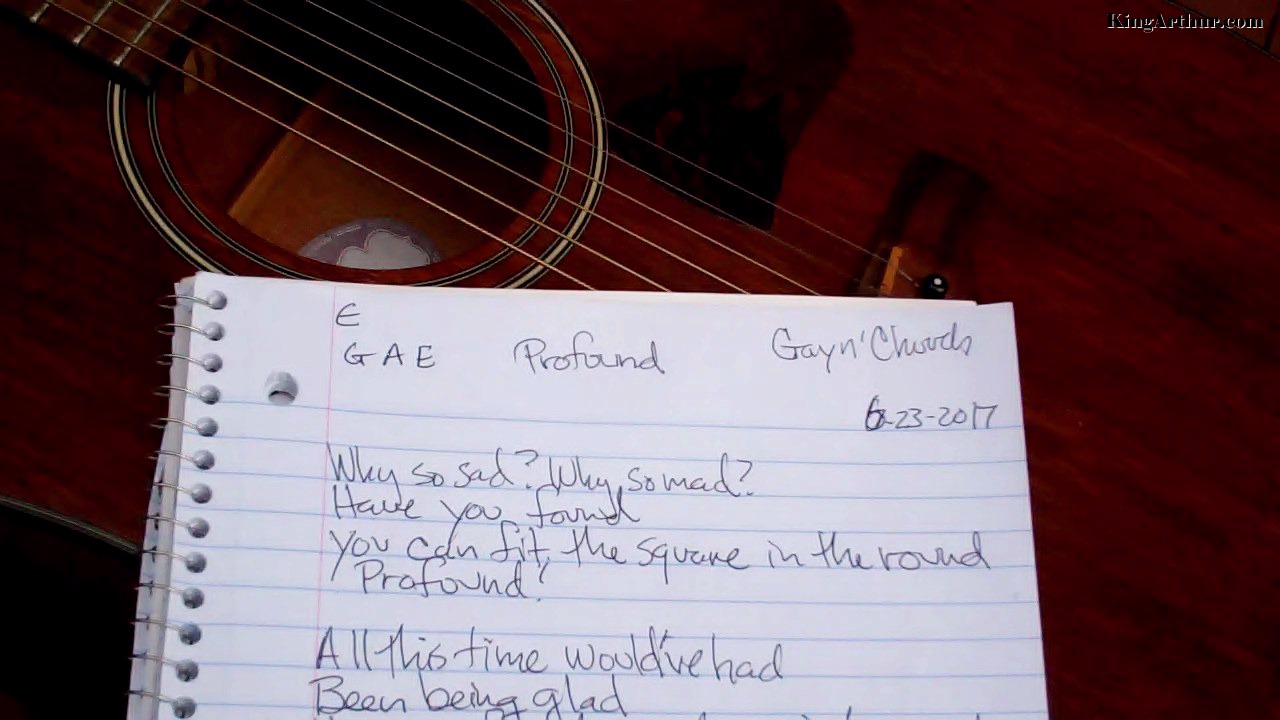 KingArthur.com
E
G A E Profound Gayn' Chords
6-23-2017
Why so sad? Why so mad?
Have you found
You can fit the square in the round
Profound!
All this time would've had
Been being glad